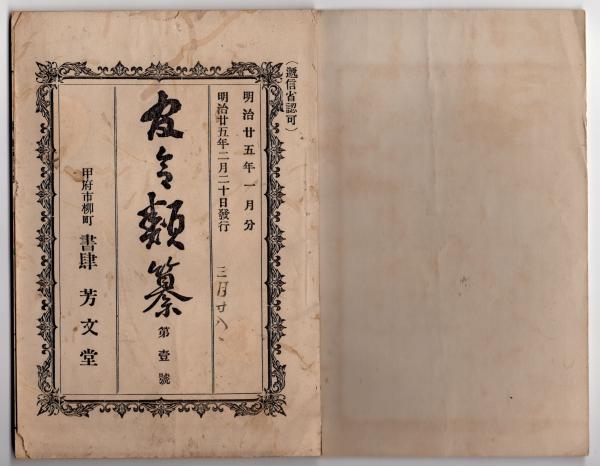 (遞信省認可)
明治廿五年一月分
明治廿五年二月二十日發行
三月廿八、
官令類纂
第壹號
甲府市柳町 書肆 芳文堂